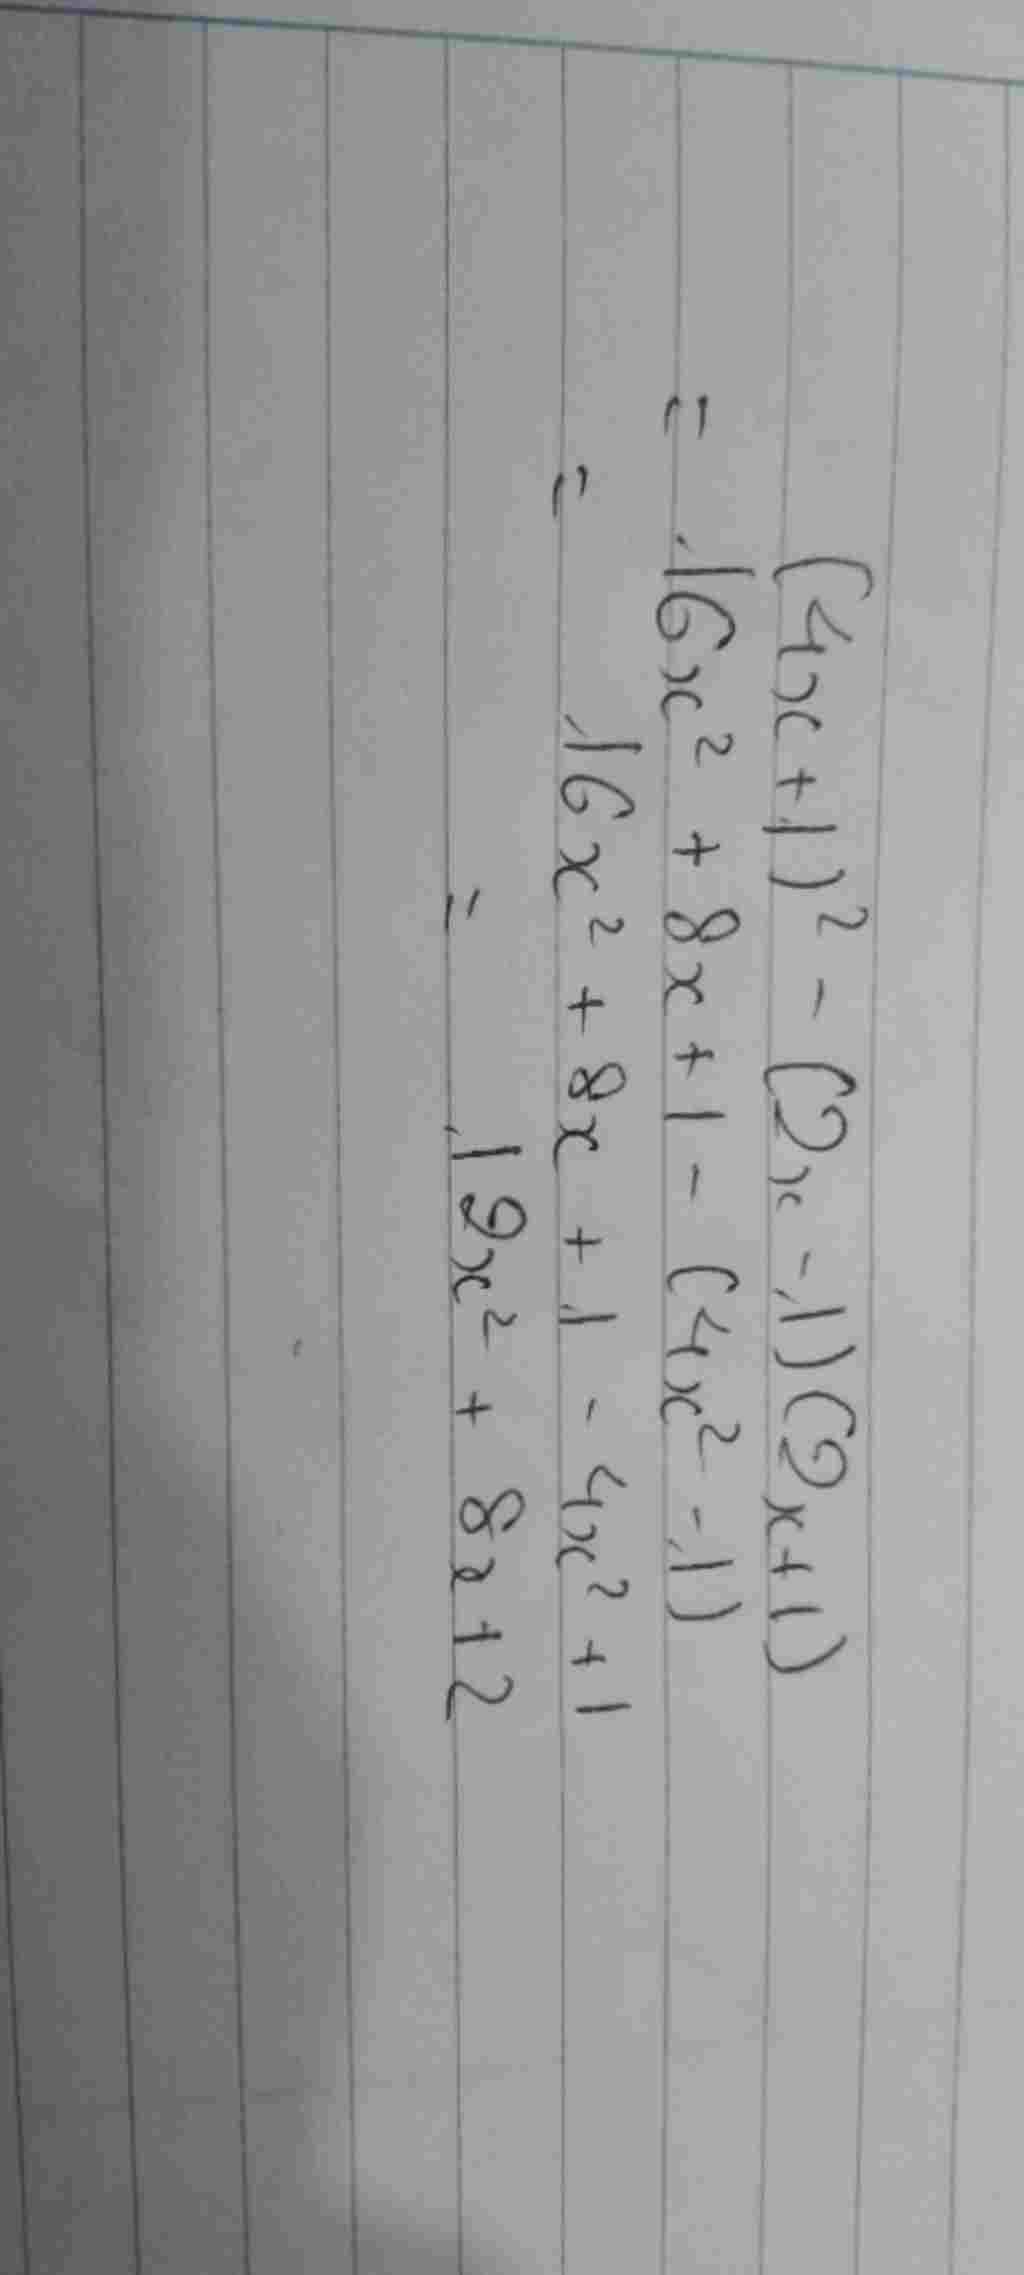 (4x+1)² - (2x-1)(2x+1)
= 16x² + 8x + 1 - (4x² - 1)
= 16x² + 8x + 1 - 4x² + 1
= 12x² + 8x + 2